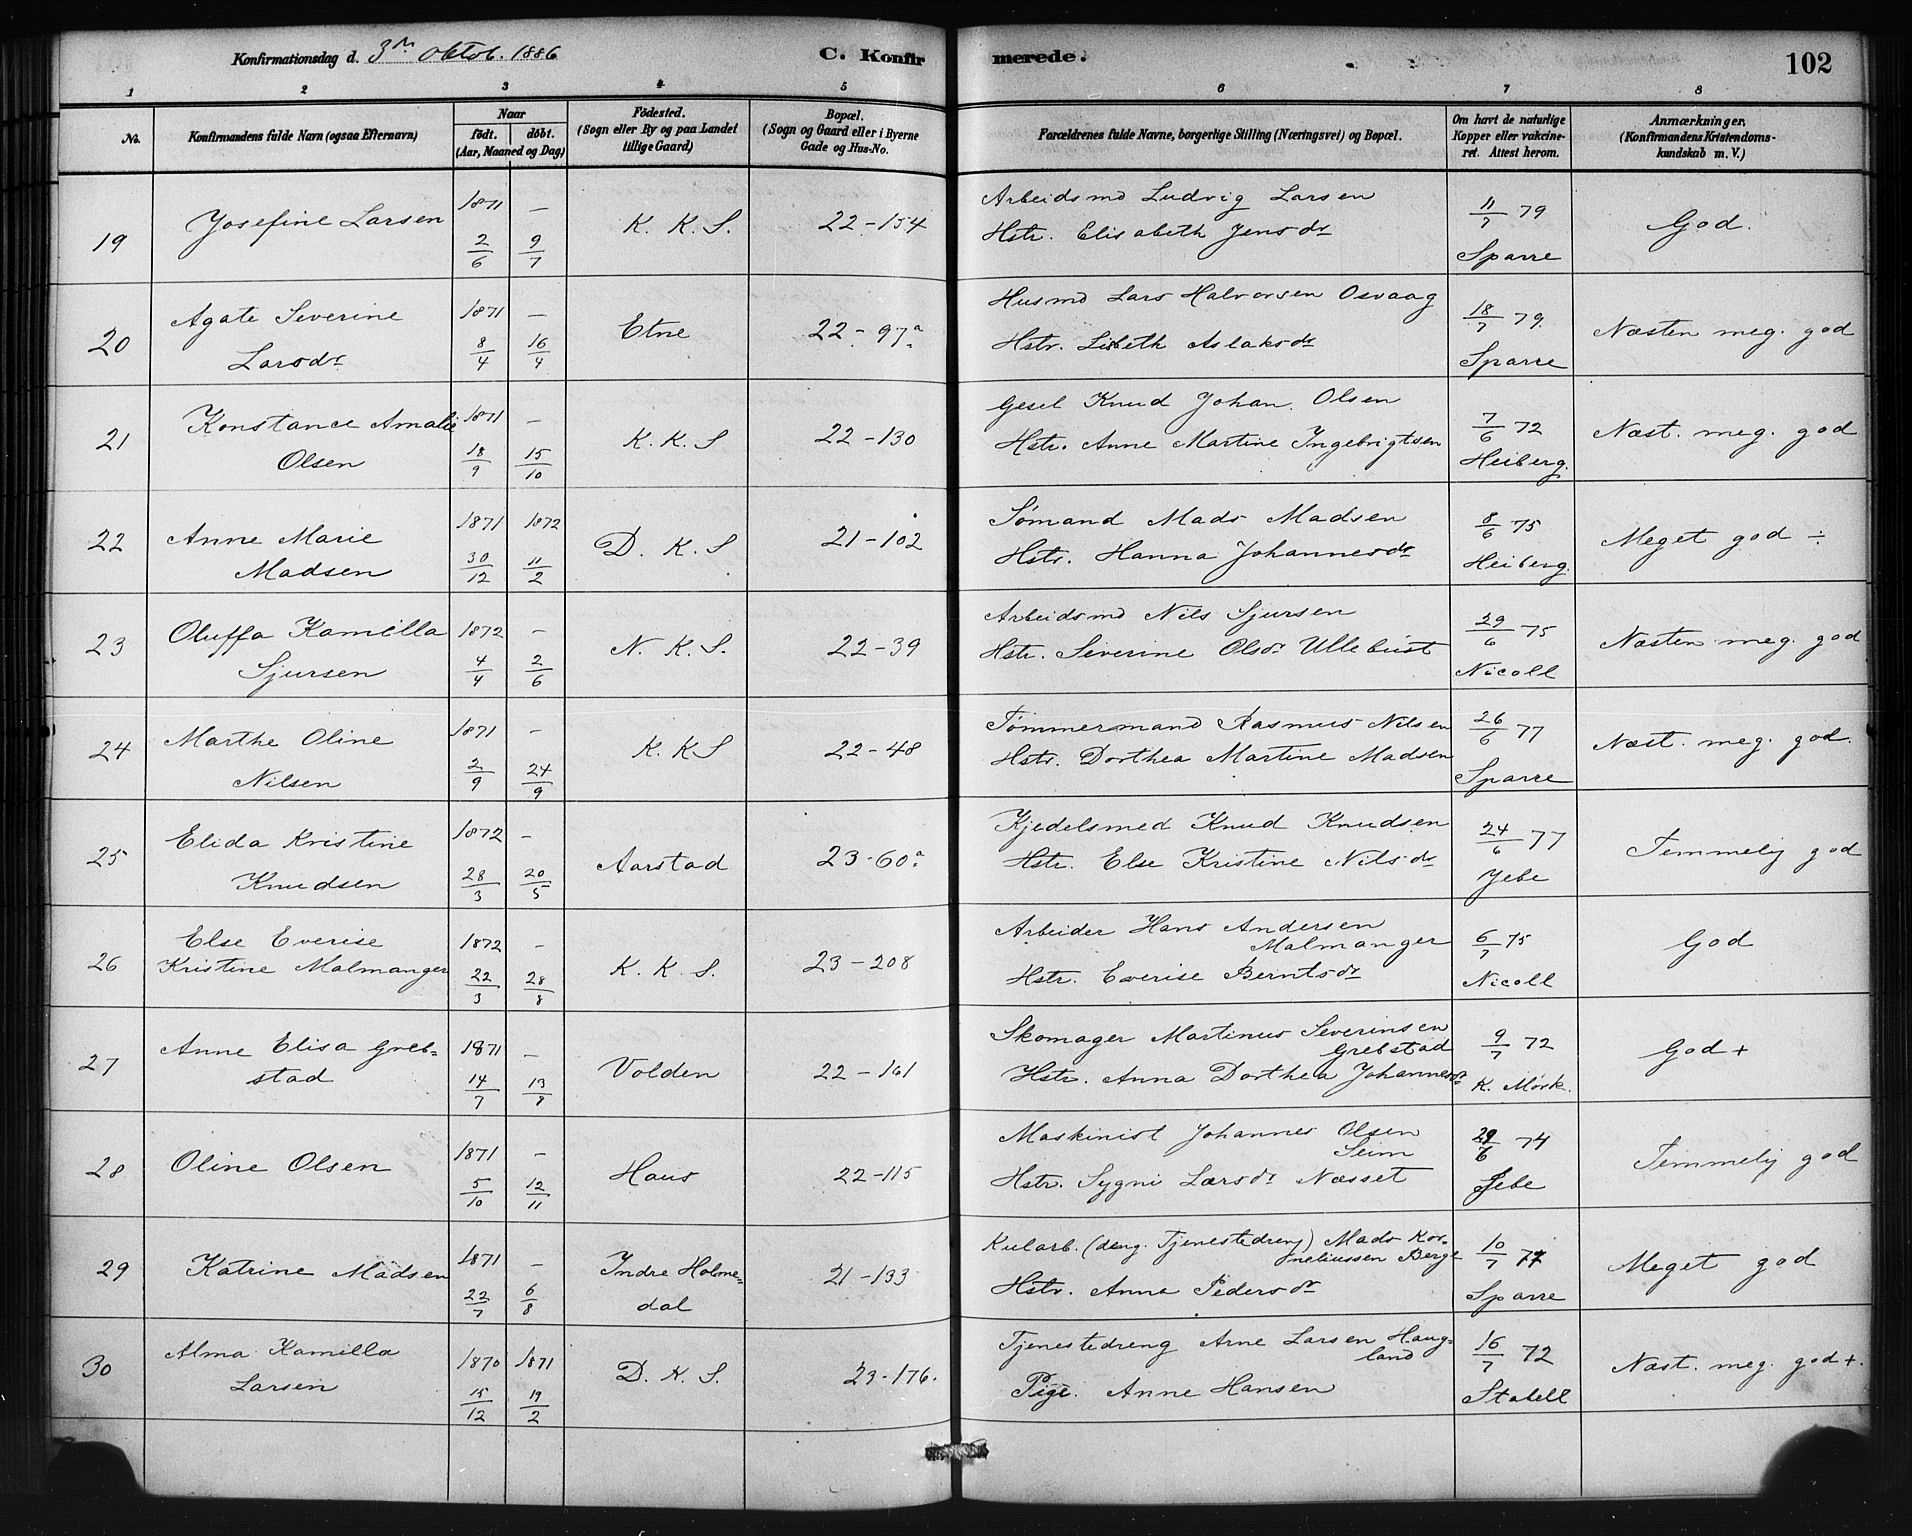 Konfirmationsdag d. 3die Oktob. 1886 C. Konfirmerede. 102
1 2 3 4 5 6 7 8
No. Konfirmandens fulde Navn (ogsaa Efternavn) Naar födt. döbt. (Aar, Maaned og Dag) Födested. (Sogn eller By og paa Landet tillige Gaard) Bopæl. (Sogn og Gaard eller i Byerne Gade og Hus-No. Forældrenes fulde Navne, borgerlige Stilling (Næringsvei) og Bopæl. Om havt de naturlige Kopper eller vakcineret. Attest herom. Anmærkninger. (Konfirmandens Kristendomskundskab m. V.)
19 Josefine Larsen 1871 2/6 — 9/7 K. K. S. 22-154 Arbeidsmd Ludvig Larsen 11/7 79 God.
Hstr. Elisabeth Jensdr Sparre
20 Agate Severine 1871 8/4 — 16/4 Etne 22-97a Husmd Lars Halvorsen Osvaag 18/7 79. Næsten meg. god
Larsdr Hstr. Lisbeth Aslaksdr Sparre
21 Konstance Amalie 1871 18/9 — 15/10 K. K. S 22-130 Gesel Knud Johan. Olsen 7/6 72 Næst. meg. god
Olsen Hstr. Anne Martine Ingebrigtsen Heiberg.
22 Anne Marie 1871 30/12 1872 11/2 D. K. S 21-102 Sømand Mads Madsen 8/6 75 Meget god ÷
Madsen Hstr. Hanna Johannesdr Heiberg.
23 Oluffa Kamilla 1872 4/4 — 2/6 N. K. S. 22-39 Arbeidsmd Nils Sjursen 29/6 75 Næsten meg. god
Sjursen Hstr. Severine Olsdr Ullebust Nicoll
24 Marthe Oline 1871 2/9 — 24/9 K. K S 22-48 Tømmermand Rasmus Nilsen 26/6 77 Næst. meg. god.
Nilsen Hstr. Dorthea Martine Madsen Sparre
25 Elida Kristine 1872 28/3 — 20/5 Aarstad 23-60a Kjedelsmed Knud Knudsen 24/6 77 Temmelig god
Knudsen Hstr. Else Kristine Nilsdr Jebe
26 Else Everise 1872 22/3 — 28/8 K. K. S. 23-208 Arbeider Hans Andersen 6/7 75 God
Kristine Malmanger Malmanger
Hstr. Everise Berntsdr Nicoll
27 Anne Elisa Greb= 1871 14/7 — 13/8 Volden 22-161 Skomager Martinus Severinsen 9/7 72 God +
stad Grebstad
Hstr. Anna Dorthea Johannesdr K. Mørk.
28 Oline Olsen 1871 5/10 — 12/11 Haus 22-115 Maskinist Johannes Olsen 29/6 74 Temmelig god
Seim
Hstr. Sygni Larsdr Næsset Jebe
29 Katrine Madsen 1871 22/7 — 6/8 Indre Holme= 21-133 Kularb. (deng. Tjenestedreng) Mads Kor= 10/7 77 Meget god
dal neliussen Berge
Hstr. Anne Pedersdr Sparre
30 Alma Kamilla 1870 15/12 1871 19/2 D. K. S. 23-176. Tjenestedreng Arne Larsen Haug= 16/7 72 Næst. meg. god +.
Larsen land
Pige. Anne Hansen Stabell